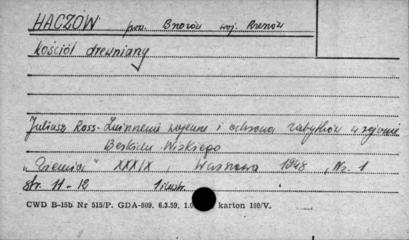 HACZÓW pow. Brzozów woj. Rzeszów
kościół drewniany
Juliusz Ross - Zniszczenia wojenne i ochrona zabytków w rejonie
Beskidu Niskiego
"Ziemia" XXXIX, Warszawa 1948, Nr. 1
str. 11-12 1 ilustr.
CWD B-15b Nr 515/P. GDA-809. 6.3.59. karton 180/V.